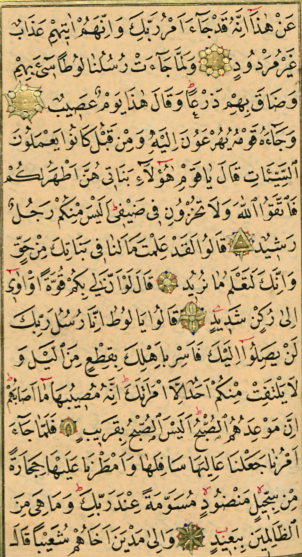 عَنْ هٰذَا اِنَّهُ قَدْ جَاءَ اَمْرُ رَبِّكَ وَاِنَّهُمْ اٰتِيهِمْ عَذَابٌ
غَيْرُ مَرْدُودٍ وَلَمَّا جَاءَتْ رُسُلُنَا لُوطًا سِيءَ بِهِمْ
وَضَاقَ بِهِمْ ذَرْعًا وَقَالَ هٰذَا يَوْمٌ عَصِيبٌ
وَجَاءَهُ قَوْمُهُ يُهْرَعُونَ اِلَيْهِ وَمِنْ قَبْلُ كَانُوا يَعْمَلُونَ
السَّيِّئَاتِ قَالَ يَا قَوْمِ هٰؤُلَاءِ بَنَاتِي هُنَّ اَطْهَرُ لَكُمْ
فَاتَّقُوا اللّٰهَ وَلَا تُخْزُونِ فِي ضَيْفِي اَلَيْسَ مِنْكُمْ رَجُلٌ
رَشِيدٌ قَالُوا لَقَدْ عَلِمْتَ مَا لَنَا فِي بَنَاتِكَ مِنْ حَقٍّ
وَاِنَّكَ لَتَعْلَمُ مَا نُرِيدُ قَالَ لَوْ اَنَّ لِي بِكُمْ قُوَّةً اَوْ اٰوِي
اِلٰى رُكْنٍ شَدِيدٍ قَالُوا يَا لُوطُ اِنَّا رُسُلُ رَبِّكَ
لَنْ يَصِلُوا اِلَيْكَ فَاَسْرِ بِاَهْلِكَ بِقِطْعٍ مِنَ الَّيْلِ وَ
لَا يَلْتَفِتْ مِنْكُمْ اَحَدٌ اِلَّا امْرَاَتَكَ اِنَّهُ مُصِيبُهَا مَا اَصَابَهُمْ
اِنَّ مَوْعِدَهُمُ الصُّبْحُ اَلَيْسَ الصُّبْحُ بِقَرِيبٍ فَلَمَّا جَاءَ
اَمْرُنَا جَعَلْنَا عَالِيَهَا سَافِلَهَا وَاَمْطَرْنَا عَلَيْهَا حِجَارَةً
مِنْ سِجِّيلٍ مَنْضُودٍ مُسَوَّمَةً عِنْدَ رَبِّكَ وَمَا هِيَ مِنَ
الظَّالِمِينَ بِبَعِيدٍ وَاِلٰى مَدْيَنَ اَخَاهُمْ شُعَيْبًا قَالَ